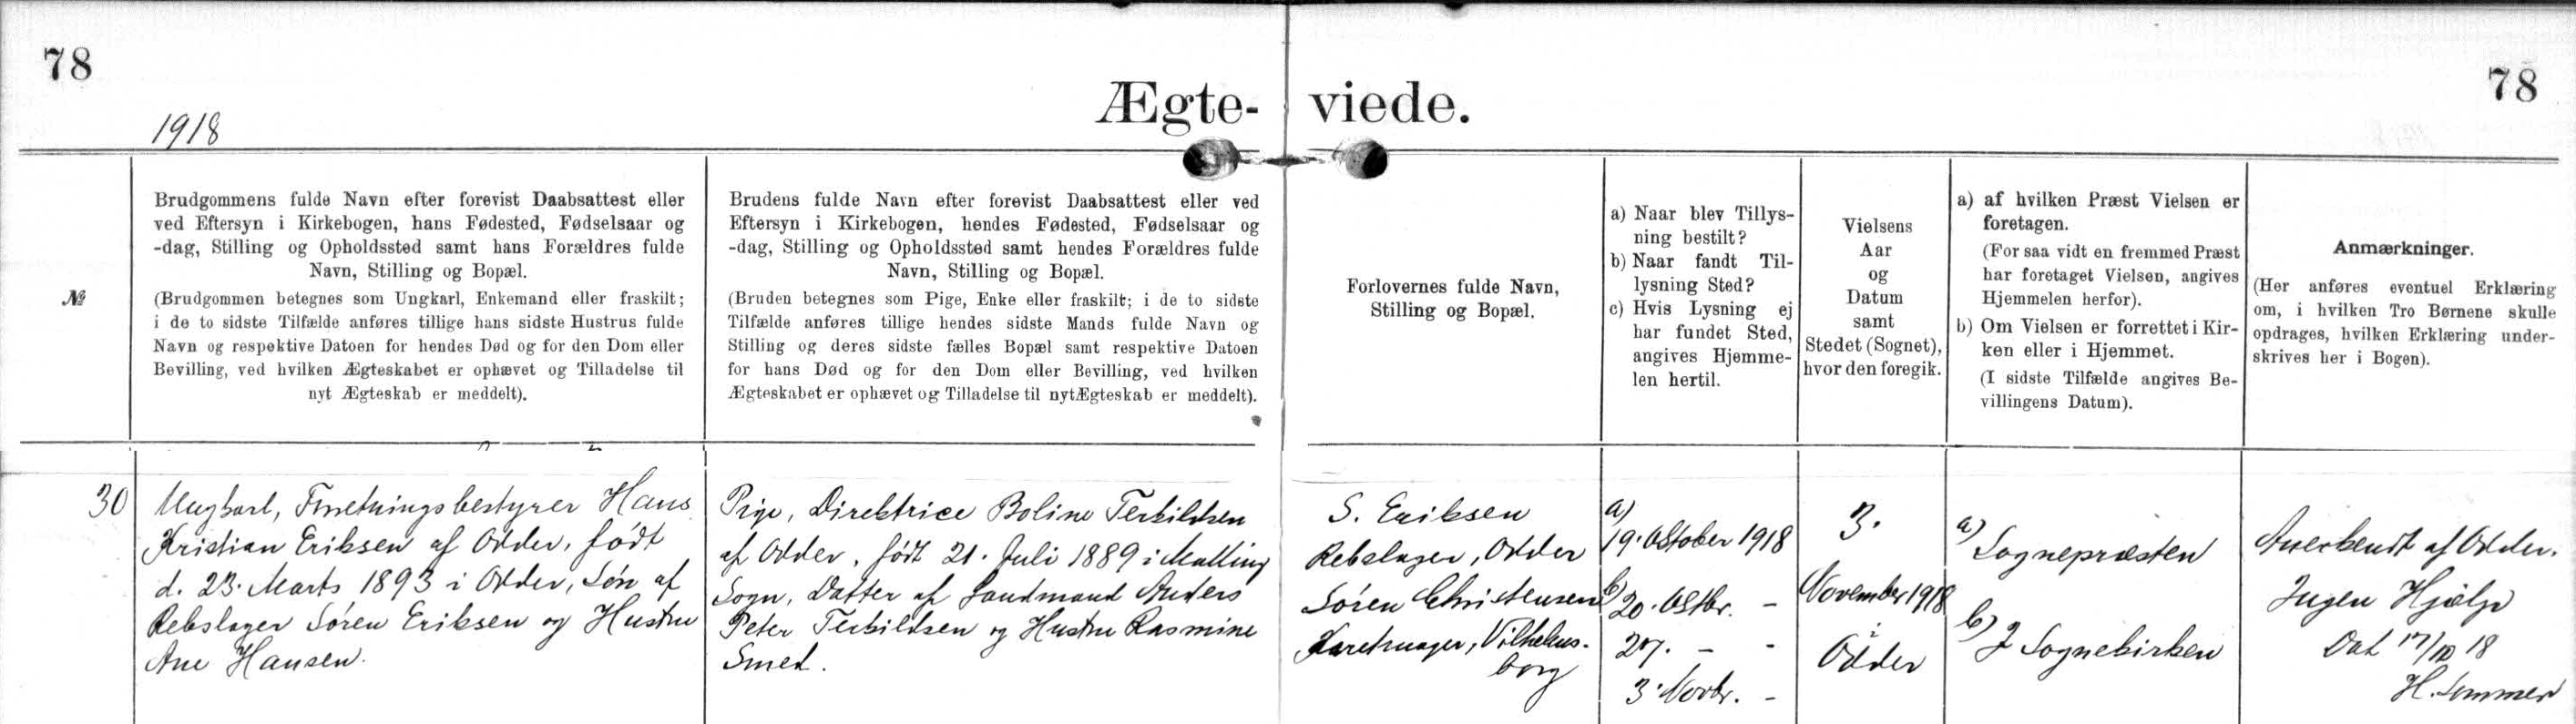 78
Ægte- viede.
78
1918
№
Brudgommens fulde Navn efter forevist Daabsattest eller
ved Eftersyn i Kirkebogen, hans Fødested, Fødselsaar og
-dag, Stilling og Opholdssted samt hans Forældres fulde
Navn, Stilling og Bopæl.
(Brudgommen betegnes som Ungkarl, Enkemand eller fraskilt;
i de to sidste Tilfælde anføres tillige hans sidste Hustrus fulde
Navn og respektive Datoen for hendes Død og for den Dom eller
Bevilling, ved hvilken Ægteskabet er ophævet og Tilladelse til
nyt Ægteskab er meddelt).
Brudens fulde Navn efter forevist Daabsattest eller ved
Eftersyn i Kirkebogen, hendes Fødested, Fødselsaar og
-dag, Stilling og Opholdssted samt hendes Forældres fulde
Navn, Stilling og Bopæl.
(Bruden betegnes som Pige, Enke eller fraskilt; i de to sidste
Tilfælde anføres tillige hendes sidste Mands fulde Navn og
Stilling og deres sidste fælles Bopæl samt respektive Datoen
for hans Død og for den Dom eller Bevilling, ved hvilken
Ægteskabet er ophævet og Tilladelse til nyt Ægteskab er meddelt).
Forlovernes fulde Navn,
Stilling og Bopæl.
a) Naar blev Tillys-
ning bestilt?
b) Naar fandt Til-
lysning Sted?
c) Hvis Lysning ej
har fundet Sted,
angives Hjemme-
len hertil.
Vielsens
Aar
og
Datum
samt
Stedet (Sognet),
hvor den foregik.
a) af hvilken Præst Vielsen er
foretagen.
(For saa vidt en fremmed Præst
har foretaget Vielsen, angives
Hjemmelen herfor).
b) Om Vielsen er forrettet i Kir-
ken eller i Hjemmet.
(I sidste Tilfælde angives Be-
villingens Datum).
Anmærkninger.
(Her anføres eventuel Erklæring
om, i hvilken Tro Børnene skulle
opdrages, hvilken Erklæring under-
skrives her i Bogen).
30
Ungkarl, Forretningsbestyrer Hans
Kristian Eriksen af Odder, født
d. 23. Marts 1893 i Odder, Søn af
Rebslager Søren Eriksen og Hustru
Ane Hansen.
Pige, Direktrice Boline Terkildsen
af Odder, født 21. Juli 1889 i Malling
Sogn, Datter af Landmand Anders
Peter Terkildsen og Hustru Rasmine
Smed.
S. Eriksen
Rebslager, Odder
Søren Christensen
Karetmager, Vilhelms-
borg
a)
19. Oktober 1918
b)
20. Oktbr. -
27. - -
3. Novbr. -
3.
November 1918
i
Odder
a)
Sognepræsten
b)
I Sognekirken
Anerkendt af Odder.
Ingen Hjælp
Dat 17/10 18
H. Sommer